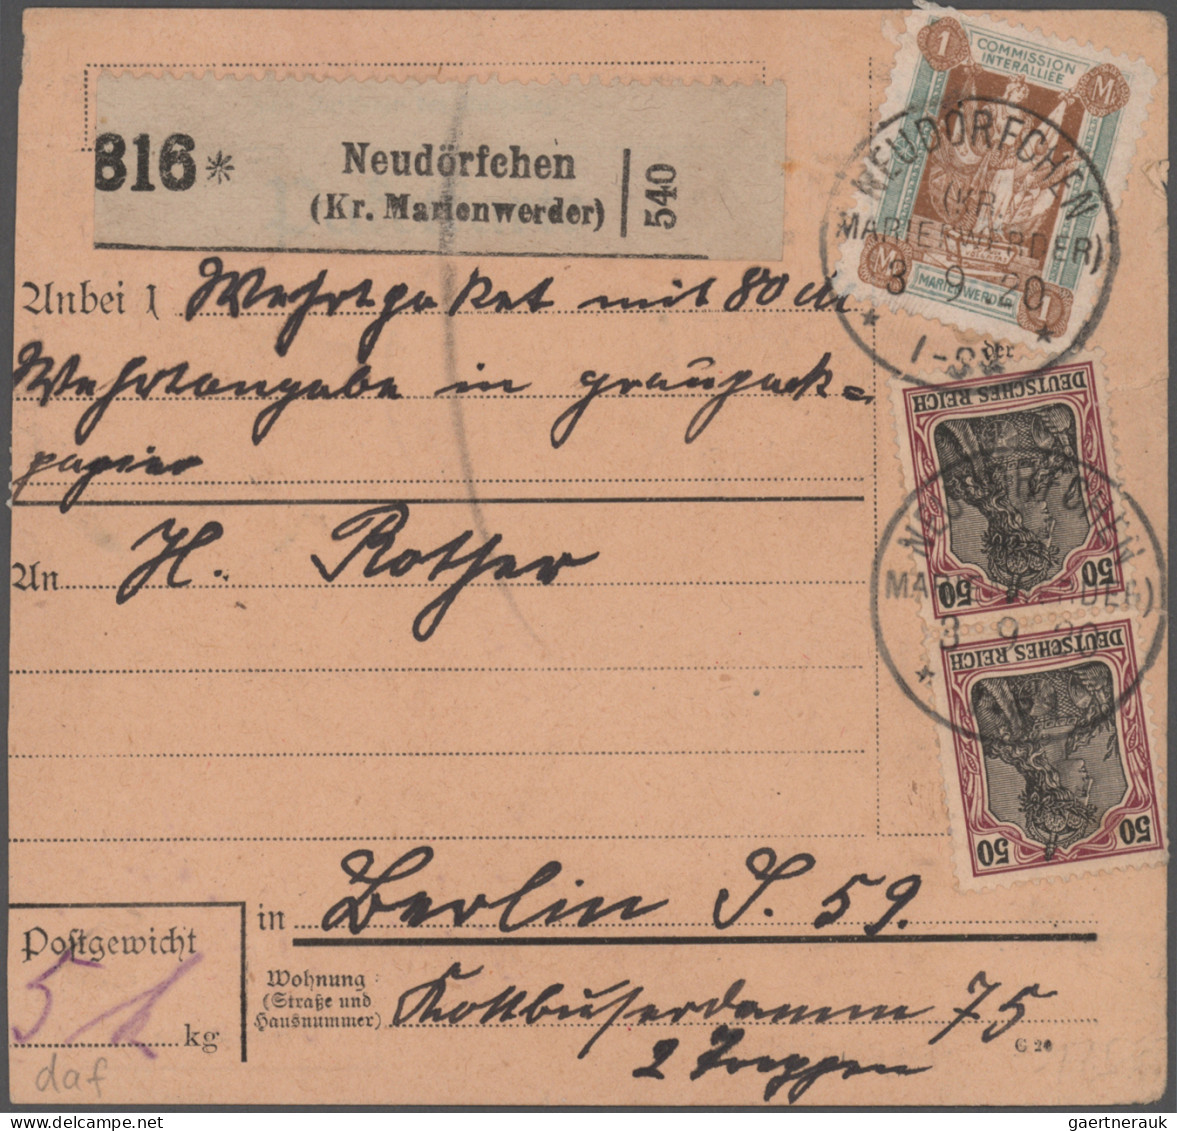 1 COMMISSION INTERALLIÉE M
M MARIENWERDER 1
816* Neudörfchen
(Kr. Marienwerder) 540
NEUDÖRFCHEN
(KR.
MARIENWERDER)
3 9 20
* *
Anbei 1 Wehrtpaket mit 80 M
der
Wehrtangabe in graupack-
papier
DEUTSCHES REICH
50 50
An H. Rother
NEUDÖRFCHEN
3 9 20
*
DEUTSCHES REICH
50 50
in Berlin S. 59.
Postgewicht
5 kg
Wohnung
(Straße und
Hausnummer)
Kottbuserdamm 75
2 Treppen
C 20
daf
gaertnerauk